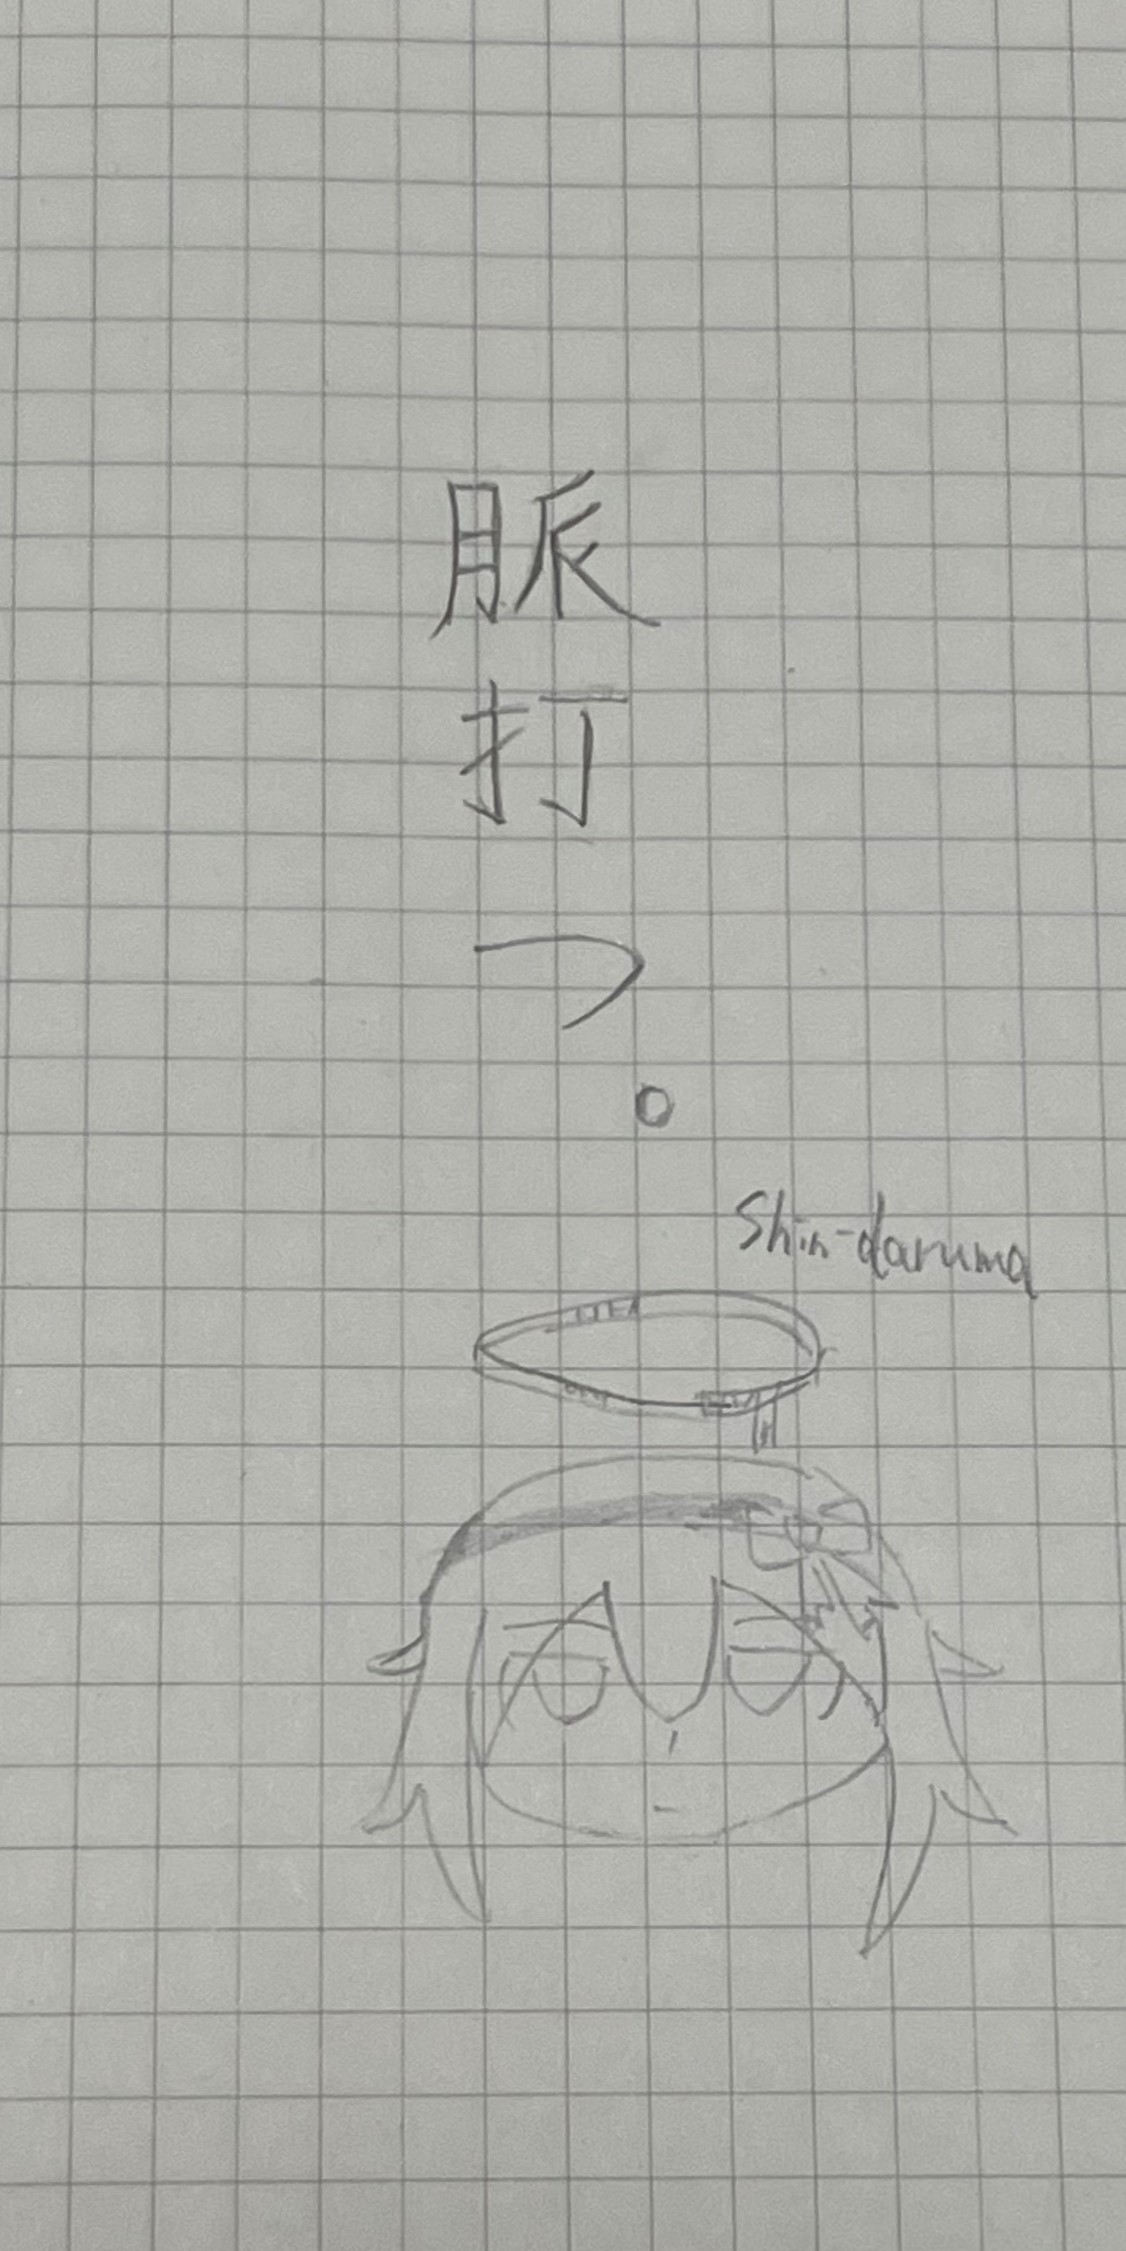 脈打つ。
Shin-daruma